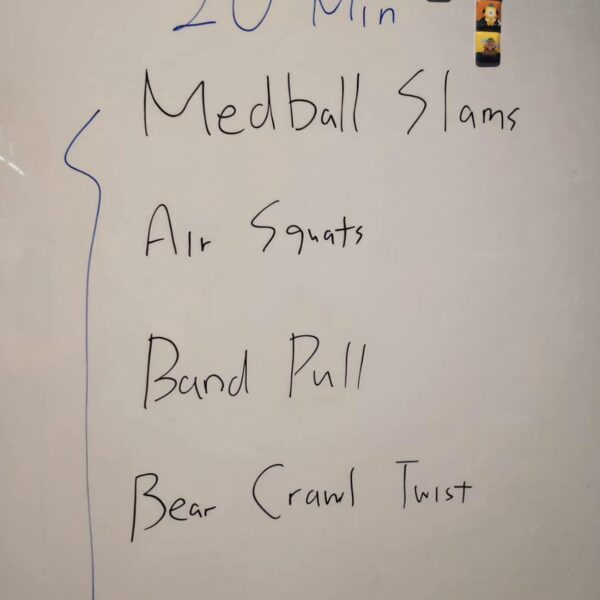 20 Min
Medball Slams
Air Squats
Band Pull
Bear Crawl Twist